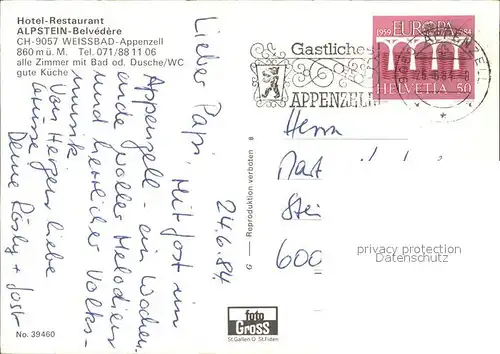 Hotel-Restaurant
ALPSTEIN-Belvédère
CH-9057 WEISSBAD-Appenzell
860 m ü. M. Tel. 071/88 11 06
alle Zimmer mit Bad od. Dusche/WC
gute Küche
24.6.84
Lieber Papi, Mit Jost im
Appenzell - ein Wochen-
ende voller Melodien
und herrlicher Volks-
musik
Von Herzen liebe
Grüsse
Deine Rösly + Jost
No. 39460
Reproduktion verboten
Gastliches
APPENZELL
APPENZELL
1959 EUROPA 1984
HELVETIA 50
Herrn
Mart
Stein
600
privacy protection
oldthing.com
foto
GROSS
St.Gallen O St.Fiden